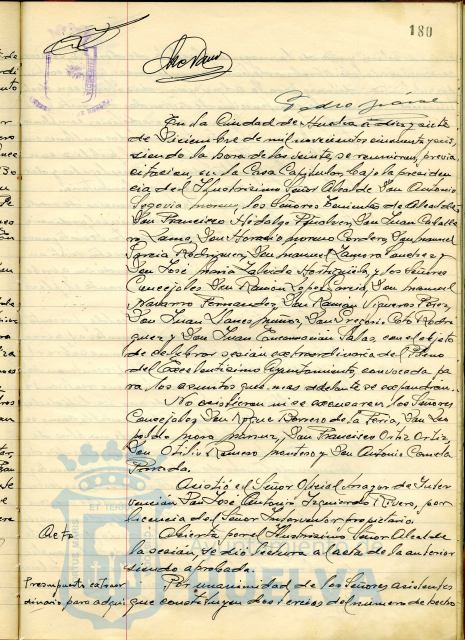 180
Pedro
En la Ciudad de Huelva a diez y siete
de Diciembre de mil novecientos cincuenta y seis
siendo la hora de las veinte, se reunieron, previa
citación, en la Casa Capitular, bajo la presiden
cia del Ilustrísimo Señor Alcalde Don Antonio
Segovia Moreno, los Señores Tenientes de Alcalde
Don Francisco Hidalgo Don Juan Caballe
ro Don Horacio Moreno Cordero, Don Manuel
García Rodríguez, Don Manuel Zamora y
Don José María y los Señores
Concejales Don Ramón López García, Don Manuel
Navarro Fernandez, Don Ramón Vigueras Pérez,
Don Juan Llanes Muñoz, Don Gregorio Rodrí
guez y Don Juan Encarnación Salas, con el objeto
de celebrar sesión extraordinaria del Pleno
del Excelentísimo Ayuntamiento, convocada pa
ra los asuntos que más adelante se expondrán.
No asistieron ni se excusaron los Señores
Concejales Don Roque Barrero de la Feria, Don Leo
poldo Mora Don Francisco Ortiz Ortiz,
Don Otilio Romero y Don Antonio
Asistió el Señor Oficial Mayor de Inter
vención Don José Antonio Izquierdo Rivero, por
licencia del Señor Interventor propietario.
Acta
Abierta por el Ilustrísimo Señor Alcalde
la sesión, se dió lectura a la de la anterior
siendo aprobada.
Presupuesto extraor
dinario para adqui
Por unanimidad de los Señores asistentes
que constituyen dos tercios del número de hecho
HUELVA